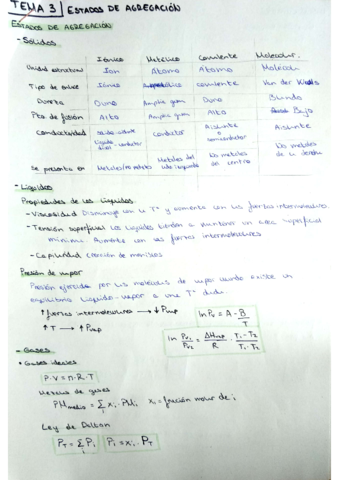 TEMA 3 | ESTADOS DE AGREGACIÓN
ESTADOS DE AGREGACIÓN
- Sólidos
Iónico Metálico Covalente Molecular
Unidad estructural Ion Átomo Átomo Molécula
Tipo de enlace Iónico Metálico covalente Van der Waals
Dureza Duro Amplia gama Duro Blando
Pto de fusión Alto Amplia gama Alto Bajo
Conductividad Conductor Aislante o semiconductor Aislante
Se presenta en Metales/no metales Metales del lado izquierdo No metales del centro No metales de la derecha
- Líquidos
Propiedades de los líquidos
- Viscosidad Disminuye con la Tª y aumenta con las fuerzas intermoleculares.
- Tensión superficial Los líquidos tienden a mantener un área superficial
mínima. Aumenta con las fuerzas intermoleculares
- Capilaridad Creación de meniscos
Presión de vapor
Presión ejercida por las moléculas de vapor cuando existe un
equilibrio líquido-vapor a una Tª dada.
↑ fuerzas intermoleculares → ↓ Pvap
ln Pv = A - B/T
↑ T → ↑ Pvap
ln Pv1/Pv2 = ΔHvap/R · T1-T2/T1·T2
- Gases
• Gases ideales
P·V = n·R·T
Mezclas de gases
PM medio = Σ xi · PMi xi = fracción molar de i
Ley de Dalton
PT = Σ Pi Pi = xi · PT